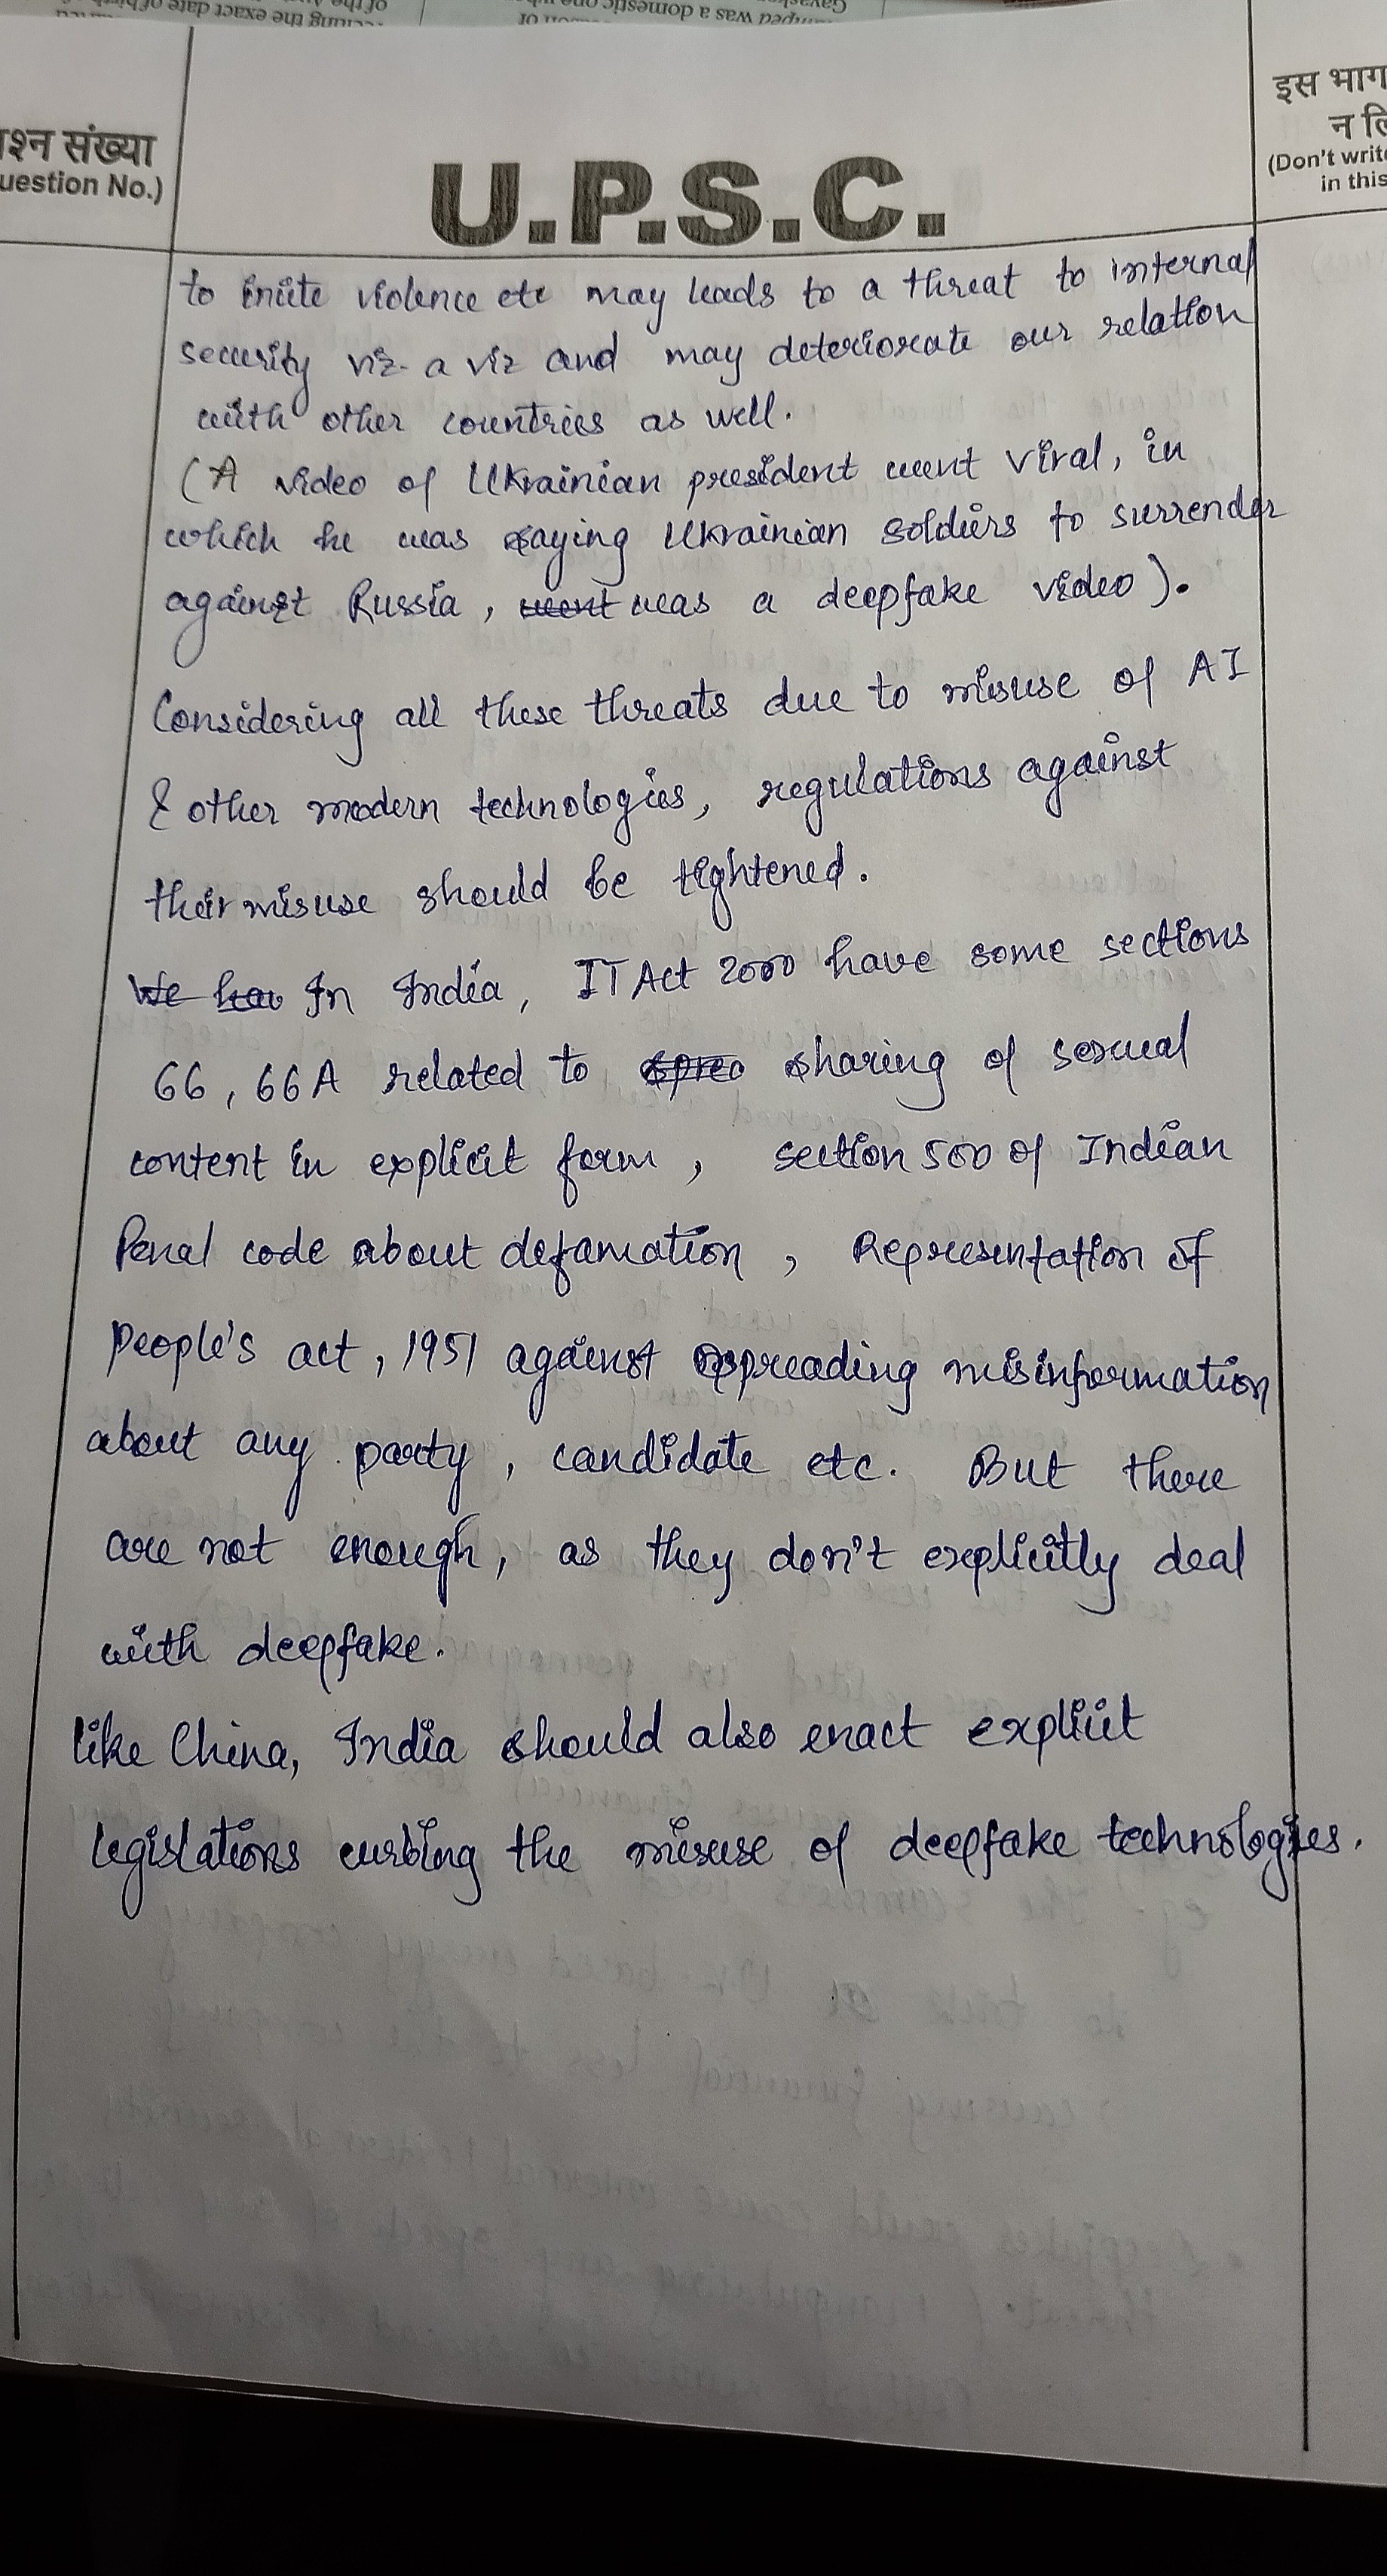 प्रश्न संख्या
uestion No.)
U.P.S.C.
इस भाग
न लि
(Don't write
in this
to incite violence etc may leads to a threat to internal
security viz-a viz and may deteriorate our relation
with other countries as well.
(A video of Ukrainian president went viral, in
which he was saying Ukrainian soldiers to surrender
against Russia, went was a deepfake video).
Considering all these threats due to misuse of AI
& other modern technologies, regulations against
their misuse should be tightened.
We hav In India, IT Act 2000 have some sections
66, 66A related to sharing of sexual
content in explicit form, section 500 of Indian
Penal code about defamation, Representation of
People's act, 1951 against spreading misinformation
about any party, candidate etc. But there
are not enough, as they don't explicitly deal
with deepfake.
like China, India should also enact explicit
legislations curbing the misuse of deepfake technologies.